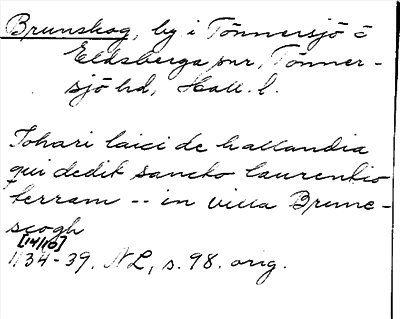 Brunskog, by i Tönnersjö o
Eldsberga snr, Tönner-
sjö hd, Hall. l.
Johari laici de hallandia
qui dedit sancto laurentio
terram -- in villa Brune-
scogh
[14/10]
1134-39. NL, s. 98. orig.